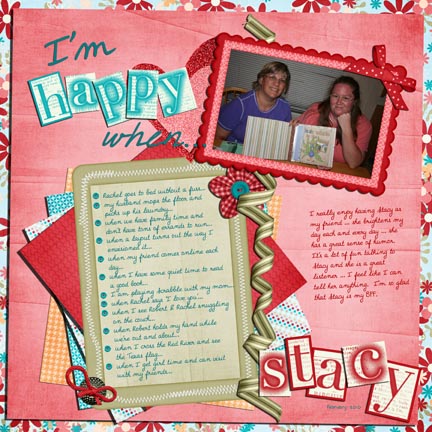 I'm
happy
when...
Rachel goes to bed without a fuss...
my husband mops the floor and
picks up his laundry...
when we have family time and
don't have tons of errands to run...
when a layout turns out the way I
envisioned it...
when my friend comes online each
day...
when I have some quiet time to read
a good book...
I am playing Scrabble with my mom...
when Rachel says "I love you"...
when I see Robert & Rachel snuggling
on the couch...
when Robert holds my hand while
we're out and about...
when I cross the Red River and see
the Texas flag...
when I get girl time and can visit
with my friends...
I really enjoy having Stacy as
my friend ... she brightens my
day each and every day ... she
has a great sense of humor.
It's a lot of fun talking to
Stacy and she is a great
listener ... I feel like I can
tell her anything. I'm so glad
that Stacy is my BFF.
stacy
february 2010